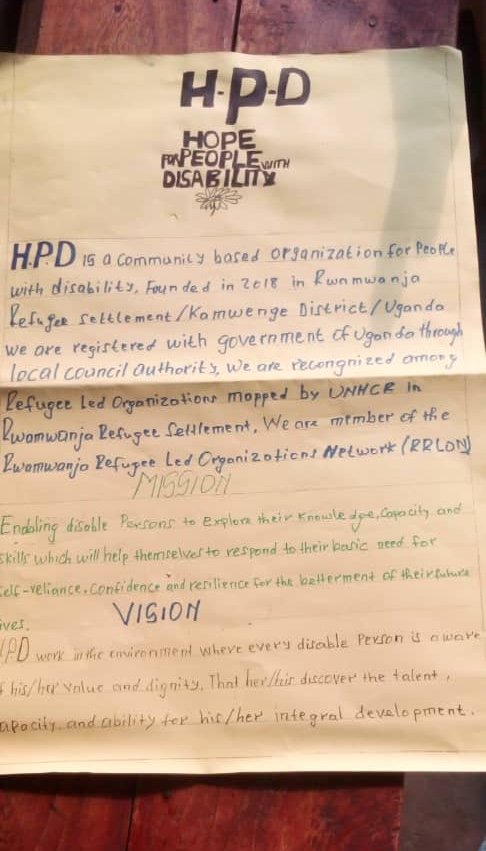 H.P.D
HOPE
FOR PEOPLE WITH
DISABILITY
H.P.D is a community based organization for People
with disability, Founded in 2018 in Rwamwanja
Refugee settlement/Kamwenge District/Uganda
we are registered with government of Uganda through
local council authority, we are recongnized among
Refugee Led Organizations mapped by UNHCR In
Rwamwanja Refugee Settlement, We are member of the
Rwamwanja Refugee Led Organizations Network (RRLON)
MISSION
Enabling disable Persons to explore their Knowledge, Capacity and
skills which will help themselves to respond to their basic need for
self-reliance, Confidence and resilience for the betterment of their future
ives.
VISION
H.P.D work in the environment where every disable Person is aware
f his/her value and dignity, That her/his discover the talent,
apacity, and ability for his/her integral development.